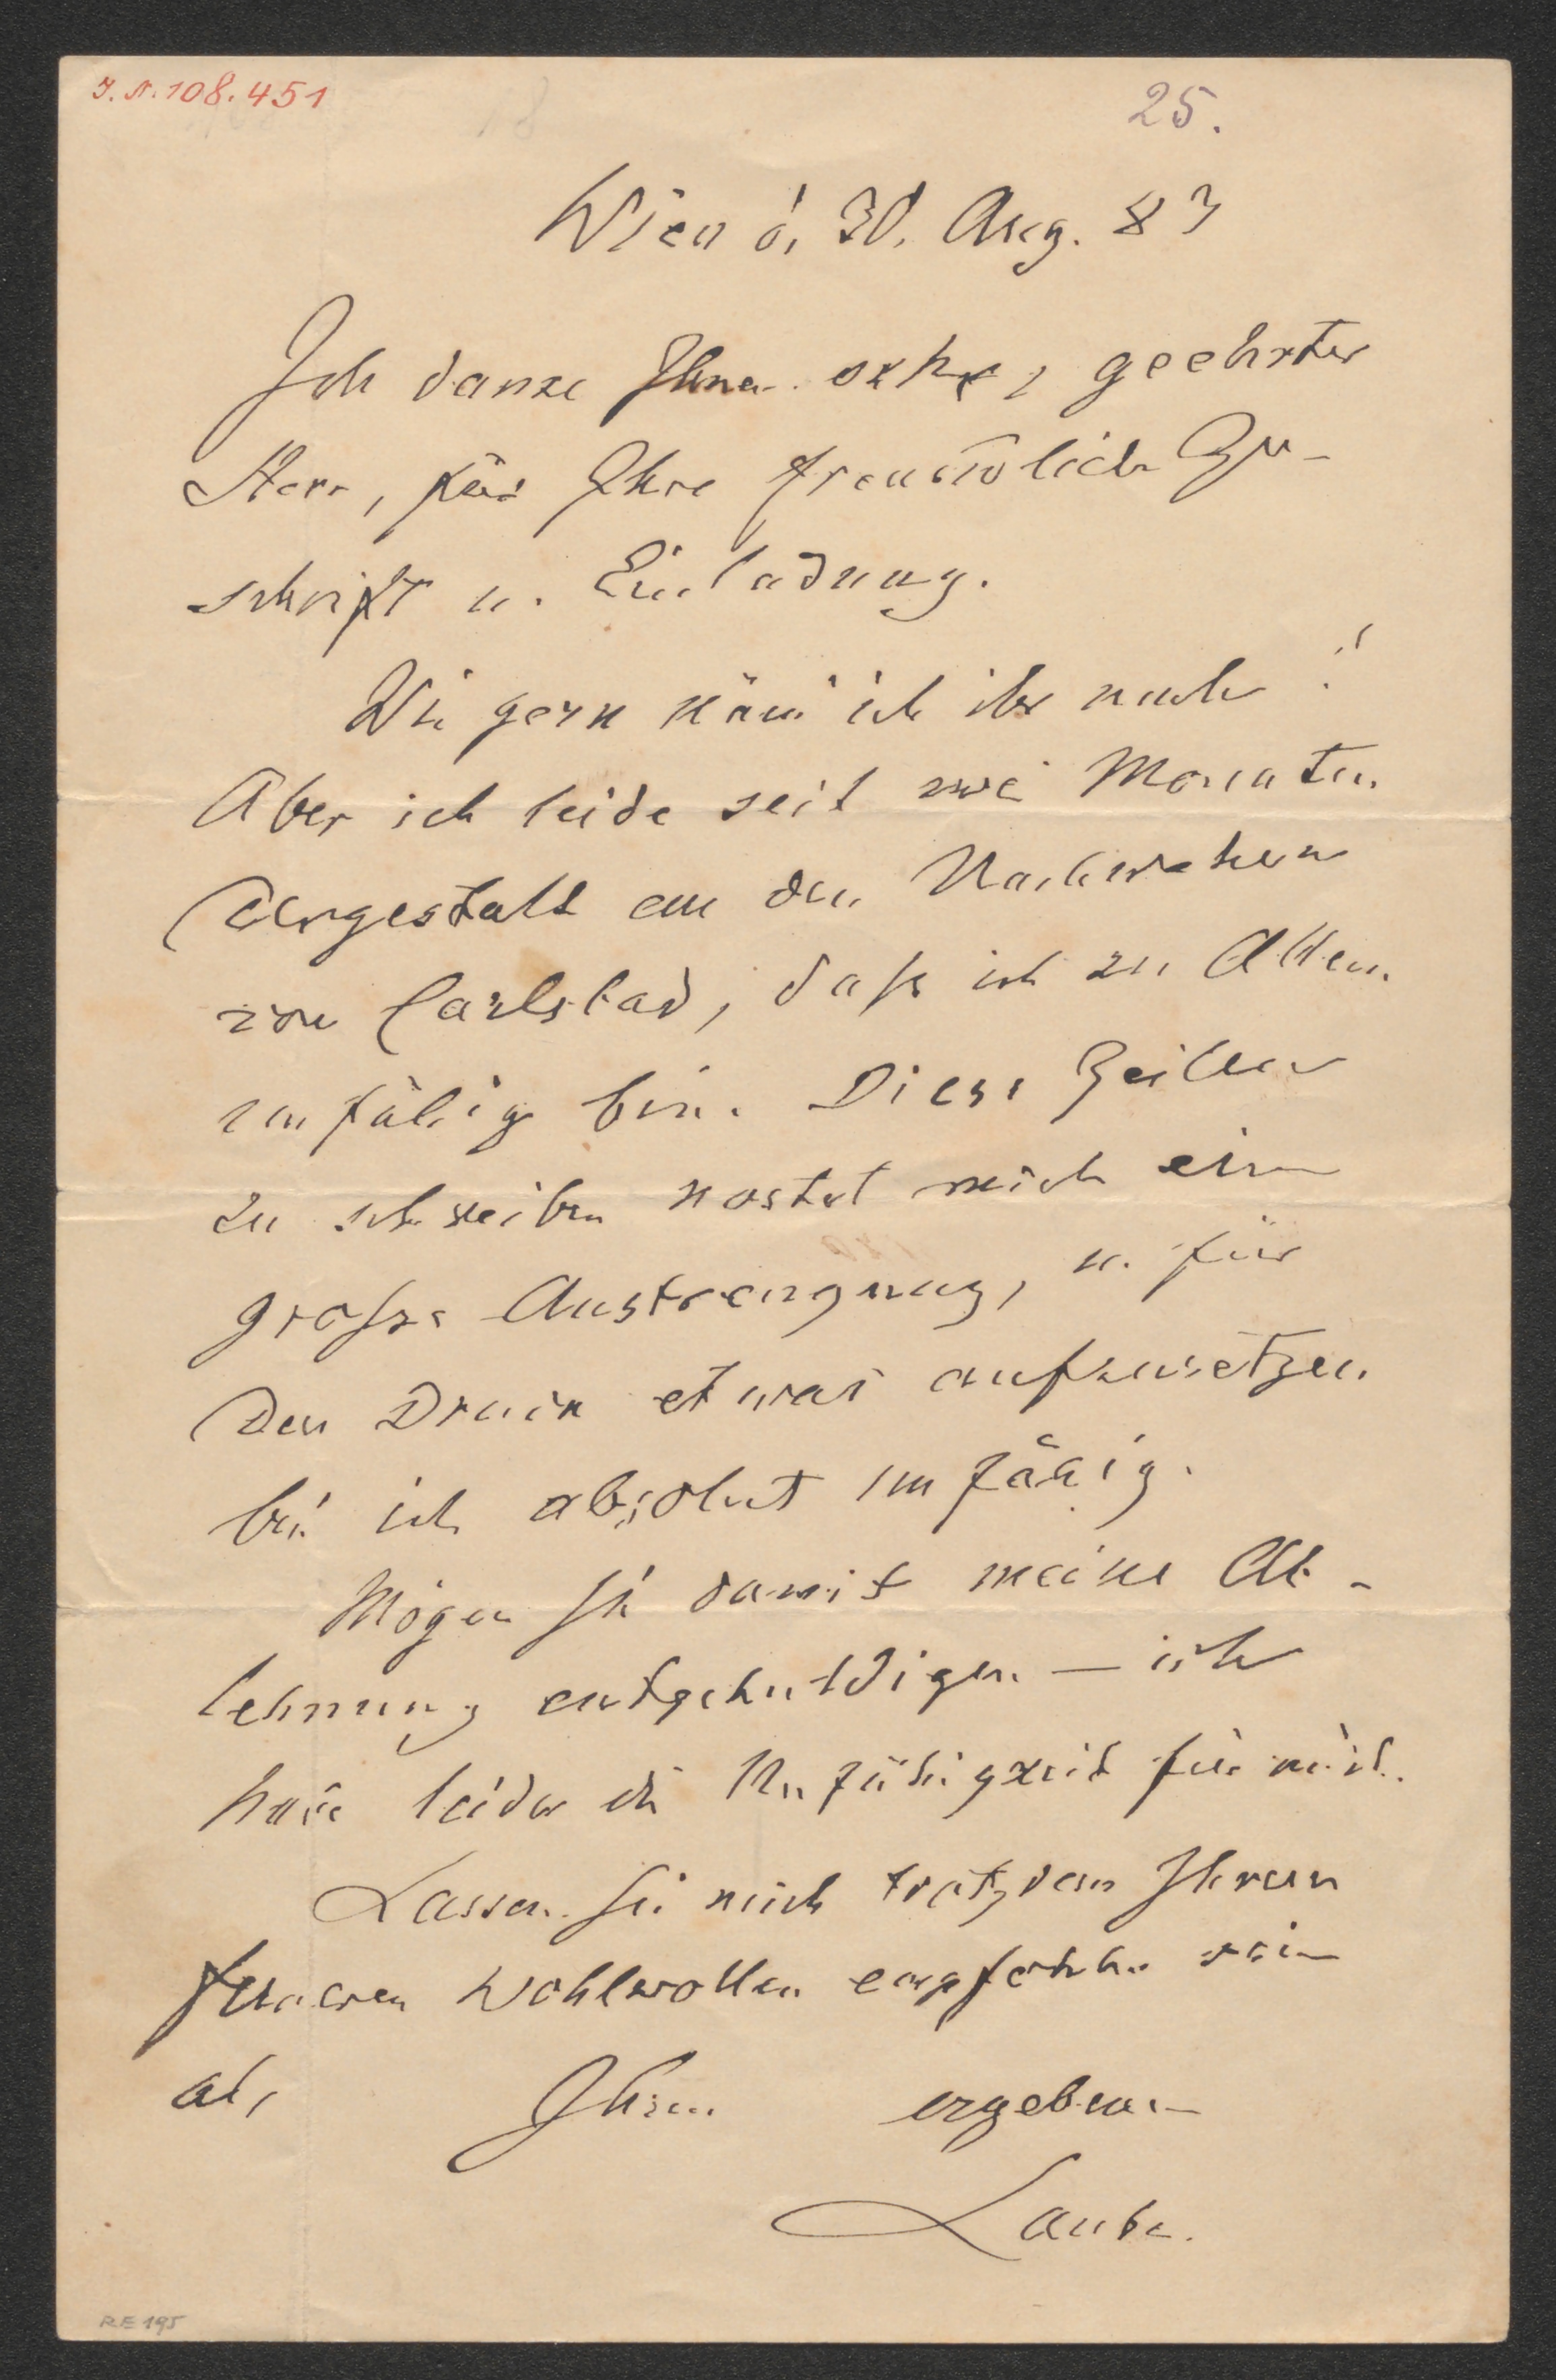 J. N. 108.451
25.
Wien d. 30. Aug. 83
Ich danke Ihnen sehr, geehrter
Herr, für Ihre freundliche Zu-
schrift u. Einladung.
Wie gern käm' ich ihr nach!
Aber ich leide seit zwei Monaten
dergestalt an den Nachwehen
von Carlsbad, daß ich zu Allem
unfähig bin. Diese Zeilen
zu schreiben kostet mich eine
große Anstrengung, u. für
den Druck etwas aufzusetzen
bin ich absolut unfähig.
Mögen Sie damit meine Ab-
lehnung entschuldigen – ich
habe leider die Unfähigkeit für mich.
Lassen Sie mich trotzdem Ihrem
ferneren Wohlwollen empfohlen sein
als Ihren ergebenen
Laube.
RE 195